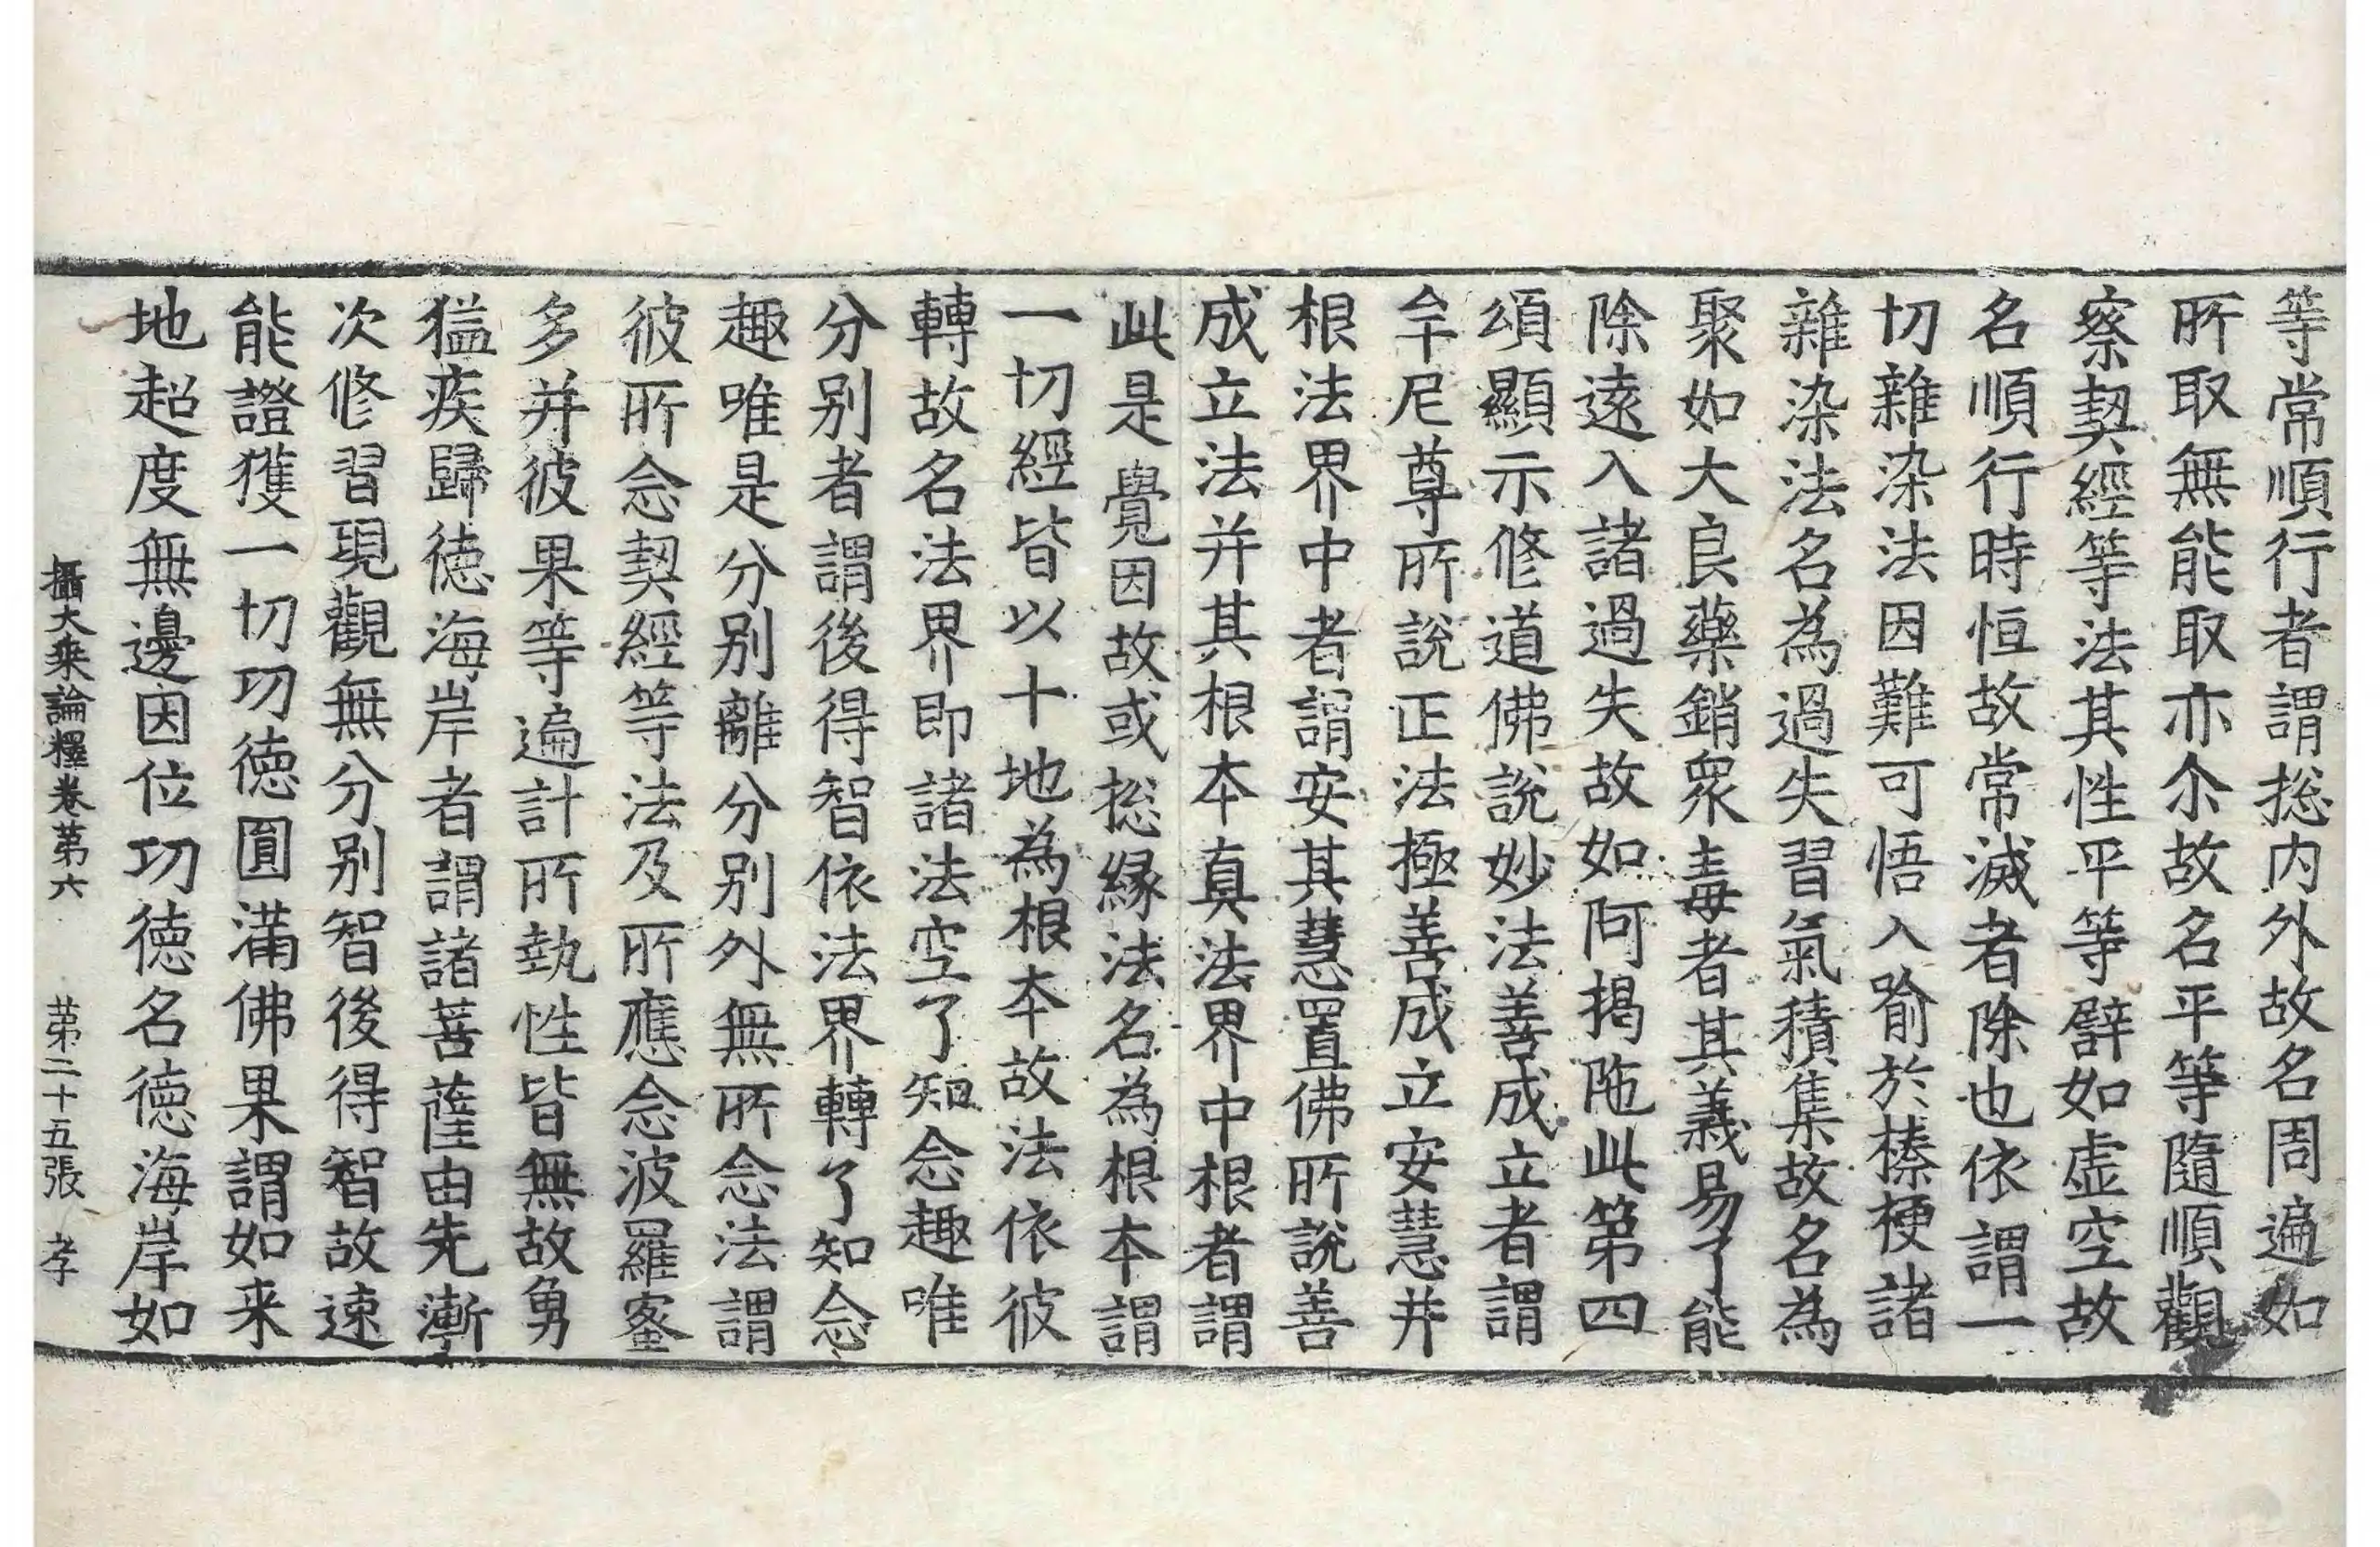 等常順行者謂捴内外故名周遍如
所取無能取亦尒故名平等隨順觀
察契經等法其性平等譬如虛空故
名順行時恒故常滅者除也依謂一
切雜染法因難可悟入喻於榛梗諸
雜染法名為過失習氣積集故名為
聚如大良藥銷衆毒者其義易了能
除遠入諸過失故如阿揭陁此第四
頌顯示修道佛說妙法善成立者謂
牟尼尊所說正法極善成立安慧并
根法界中者謂安其慧置佛所說善
成立法并其根本真法界中根者謂
此是覺因故或捴緣法名為根本謂
一切經皆以十地為根本故法依彼
轉故名法界即諸法空了知念趣唯
分别者謂後得智依法界轉了知念
趣唯是分别離分别外無所念法謂
彼所念契經等法及所應念波羅蜜
多并彼果等遍計所執性皆無故勇
猛疾歸德海岸者謂諸菩薩由先漸
次修習現觀無分别智後得智故速
能證獲一切功德圓滿佛果謂如来
地超度無邊因位功德名德海岸如
攝大乘論釋卷第六 第二十五張 孝